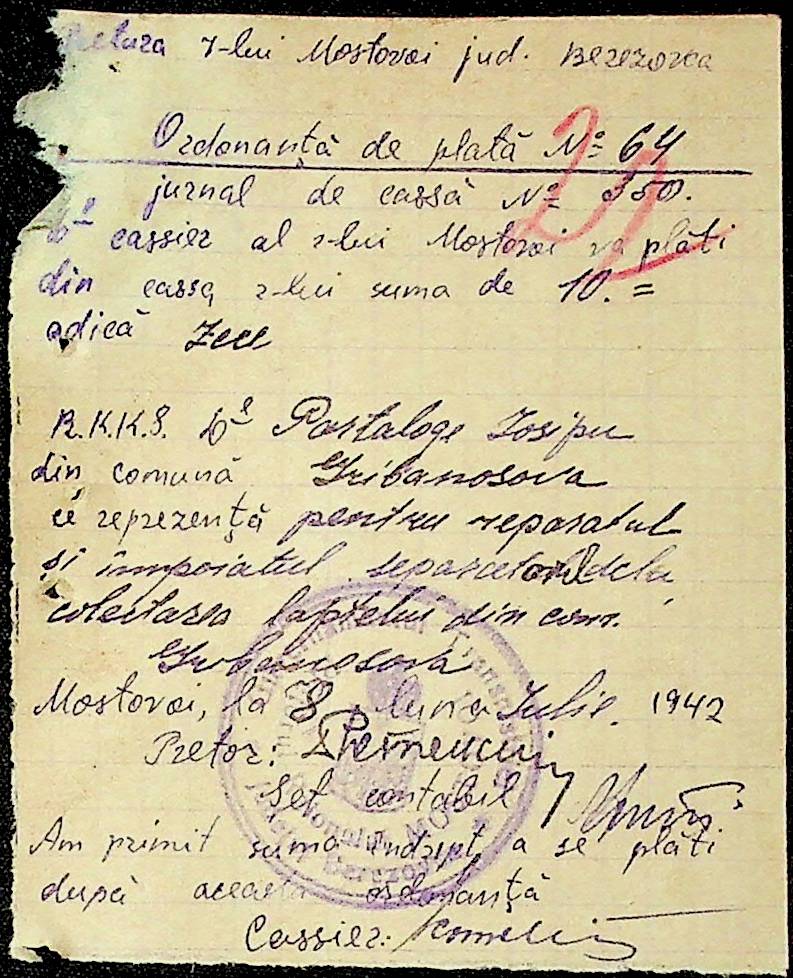 Pretura r-lui Mostovoi jud. Berezovca
Ordonanță de plată No 64
jurnal de cassă No 350.
Dl cassier al r-lui Mostovoi va plăti
din cassa r-lui suma de 10. =
adică Zece
R.K.K.S. Dl Postaloge Iosipu
din comună Gribanosova
ce reprezență pentru reparatul
și împoiatul separatorul dela
colectarea laptelui din com.
Gribanosova
Mostovoi, la 8, luna Iulie. 1942
Pretor:
Șef contabil
Am primit suma îndrept a se plăti
după aceasta ordonanță
Cassier:
Transnistriei
Județul Berezovca